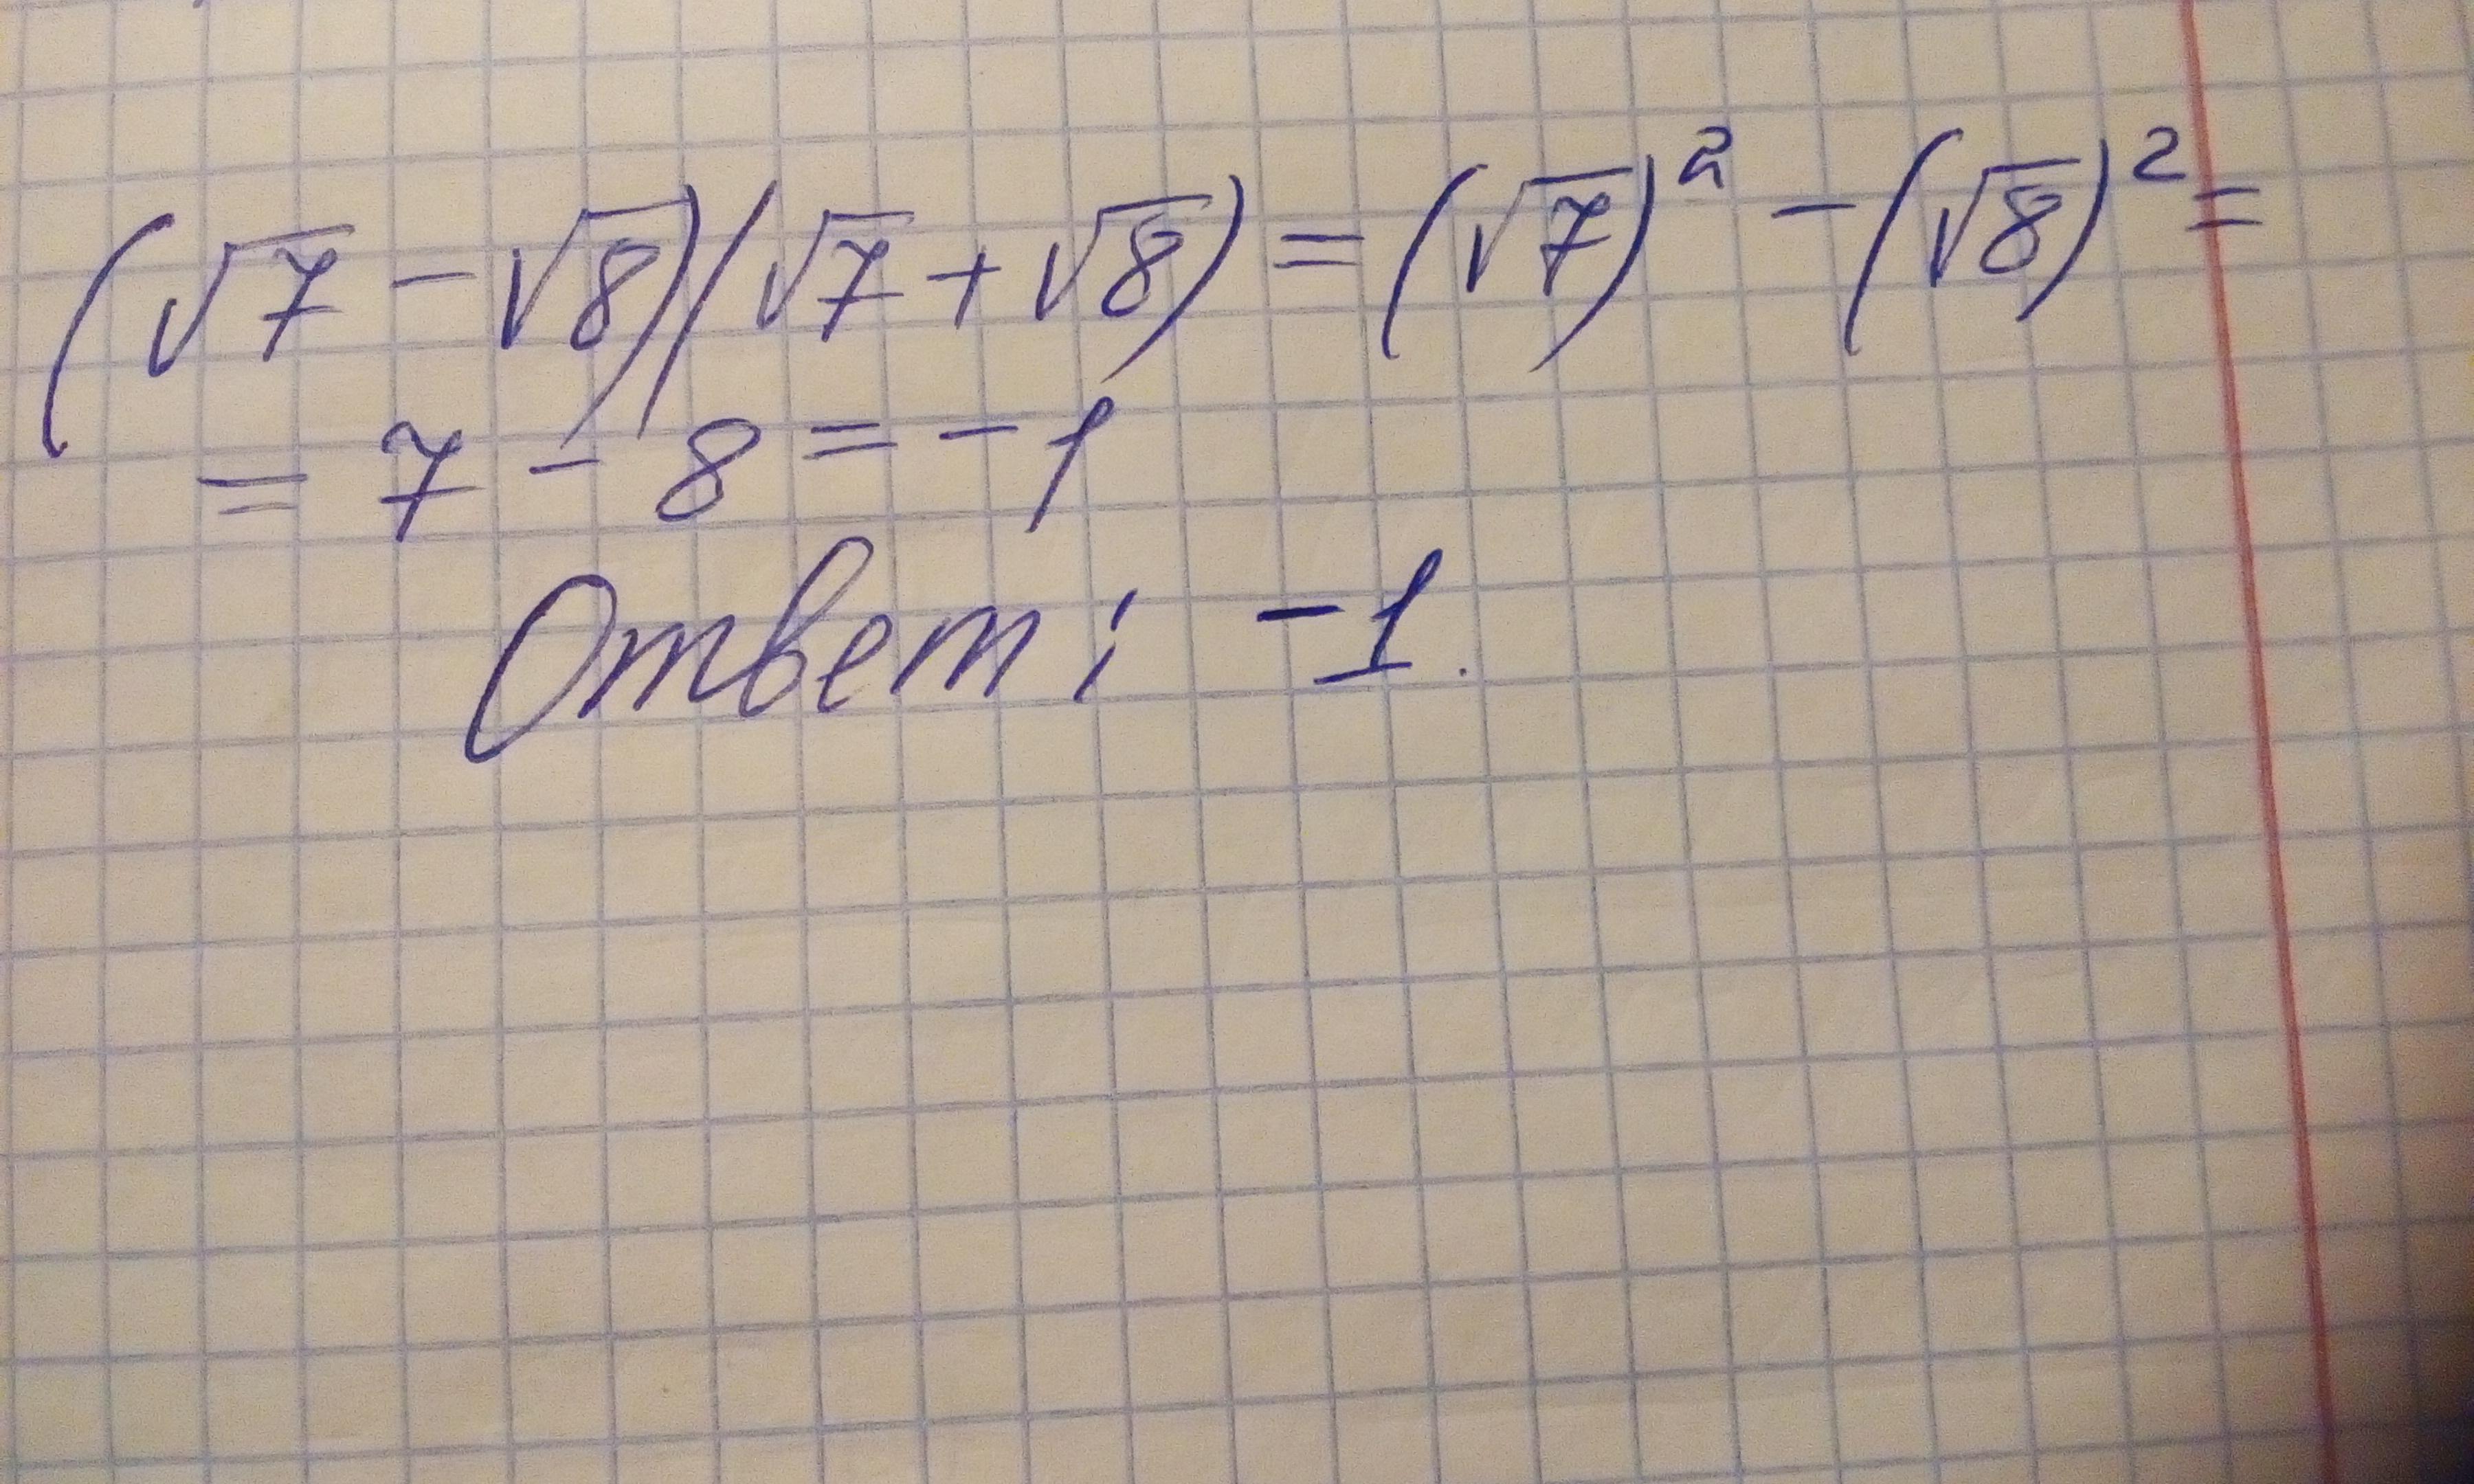 (√7 - √8)(√7 + √8) = (√7)² - (√8)² =
= 7 - 8 = -1
Ответ: -1.